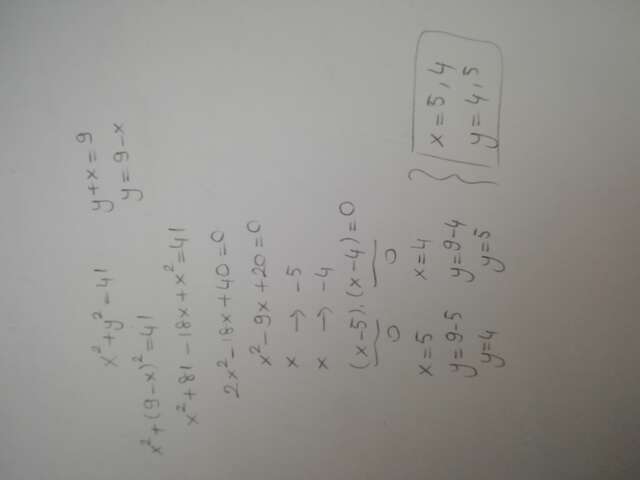 x² + y² = 41    y + x = 9
y = 9 - x
x² + (9 - x)² = 41
x² + 81 - 18x + x² = 41
2x² - 18x + 40 = 0
x² - 9x + 20 = 0
x → -5
x → -4
(x - 5) . (x - 4) = 0
0    0
x = 5    x = 4    x = 5, 4
y = 9 - 5    y = 9 - 4    y = 4, 5
y = 4    y = 5